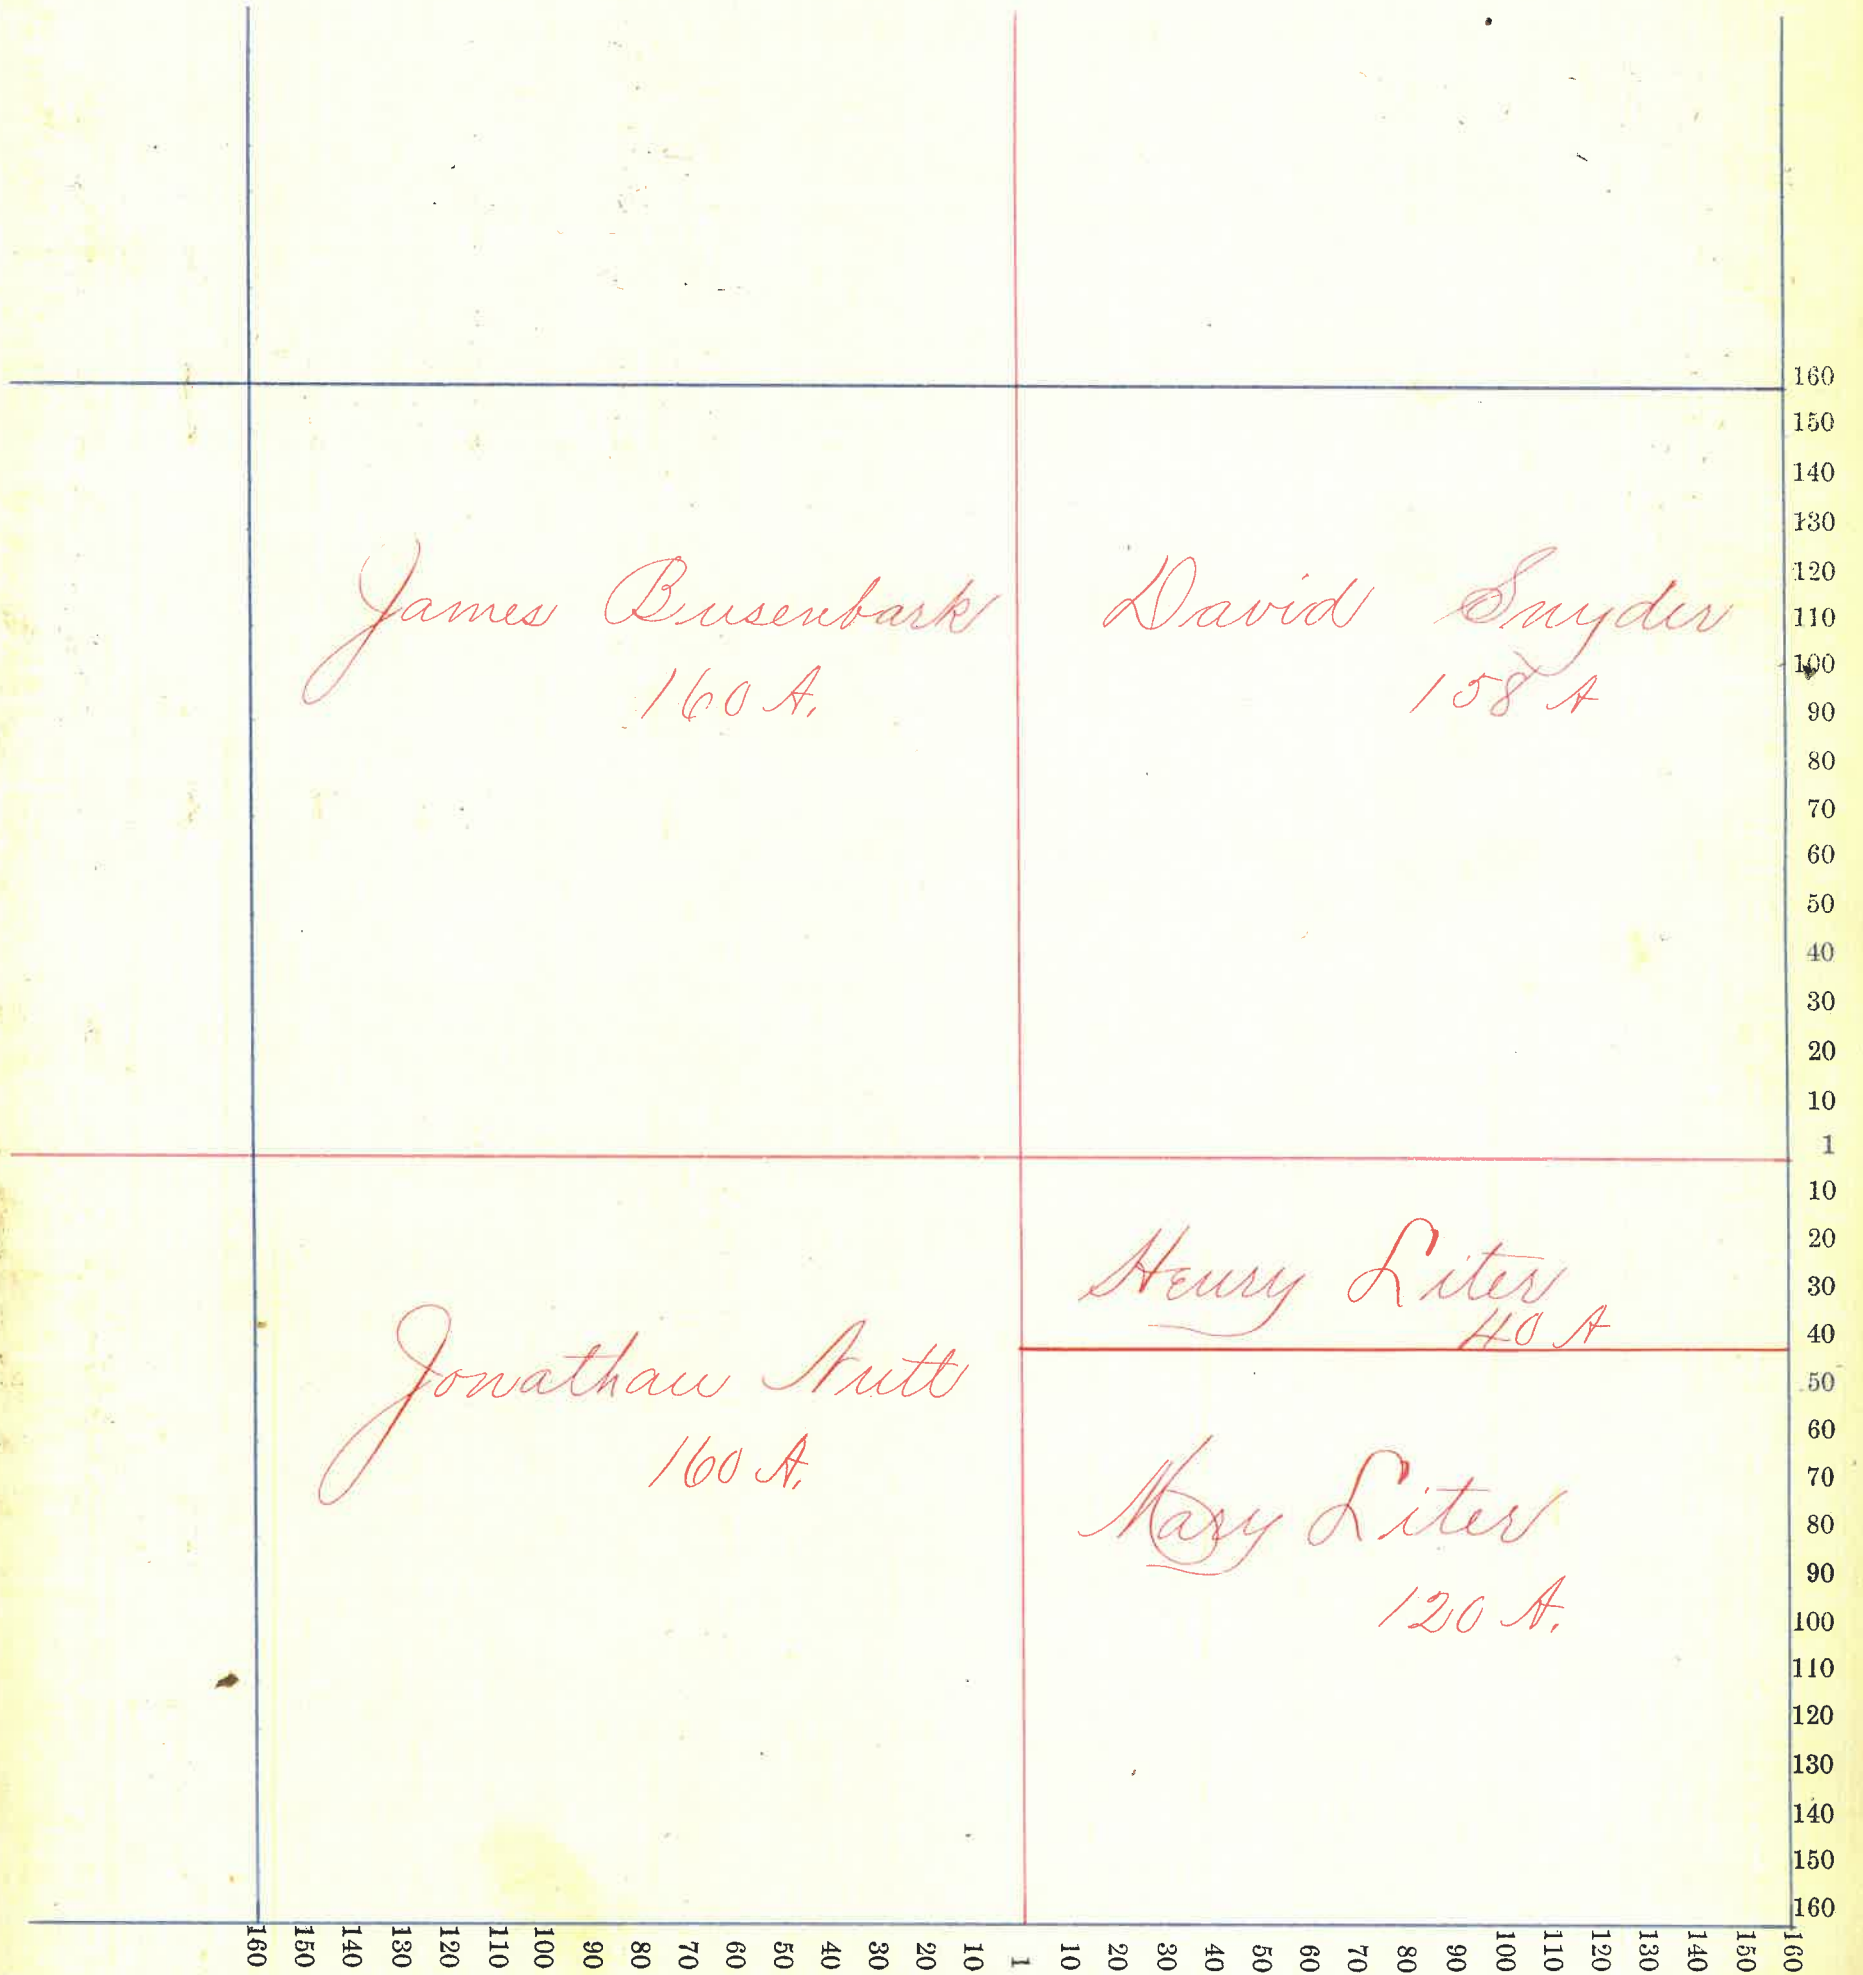 James Busenbark
160 A.
David Snyder
158 A
Henry Liter
40 A
Jonathan Nutt
160 A.
Mary Liter
120 A.
160
150
140
130
120
110
100
90
80
70
60
50
40
30
20
10
1
10
20
30
40
50
60
70
80
90
100
110
120
130
140
150
160
160 150 140 130 120 110 100 90 80 70 60 50 40 30 20 10 1 10 20 30 40 50 60 70 80 90 100 110 120 130 140 150 160